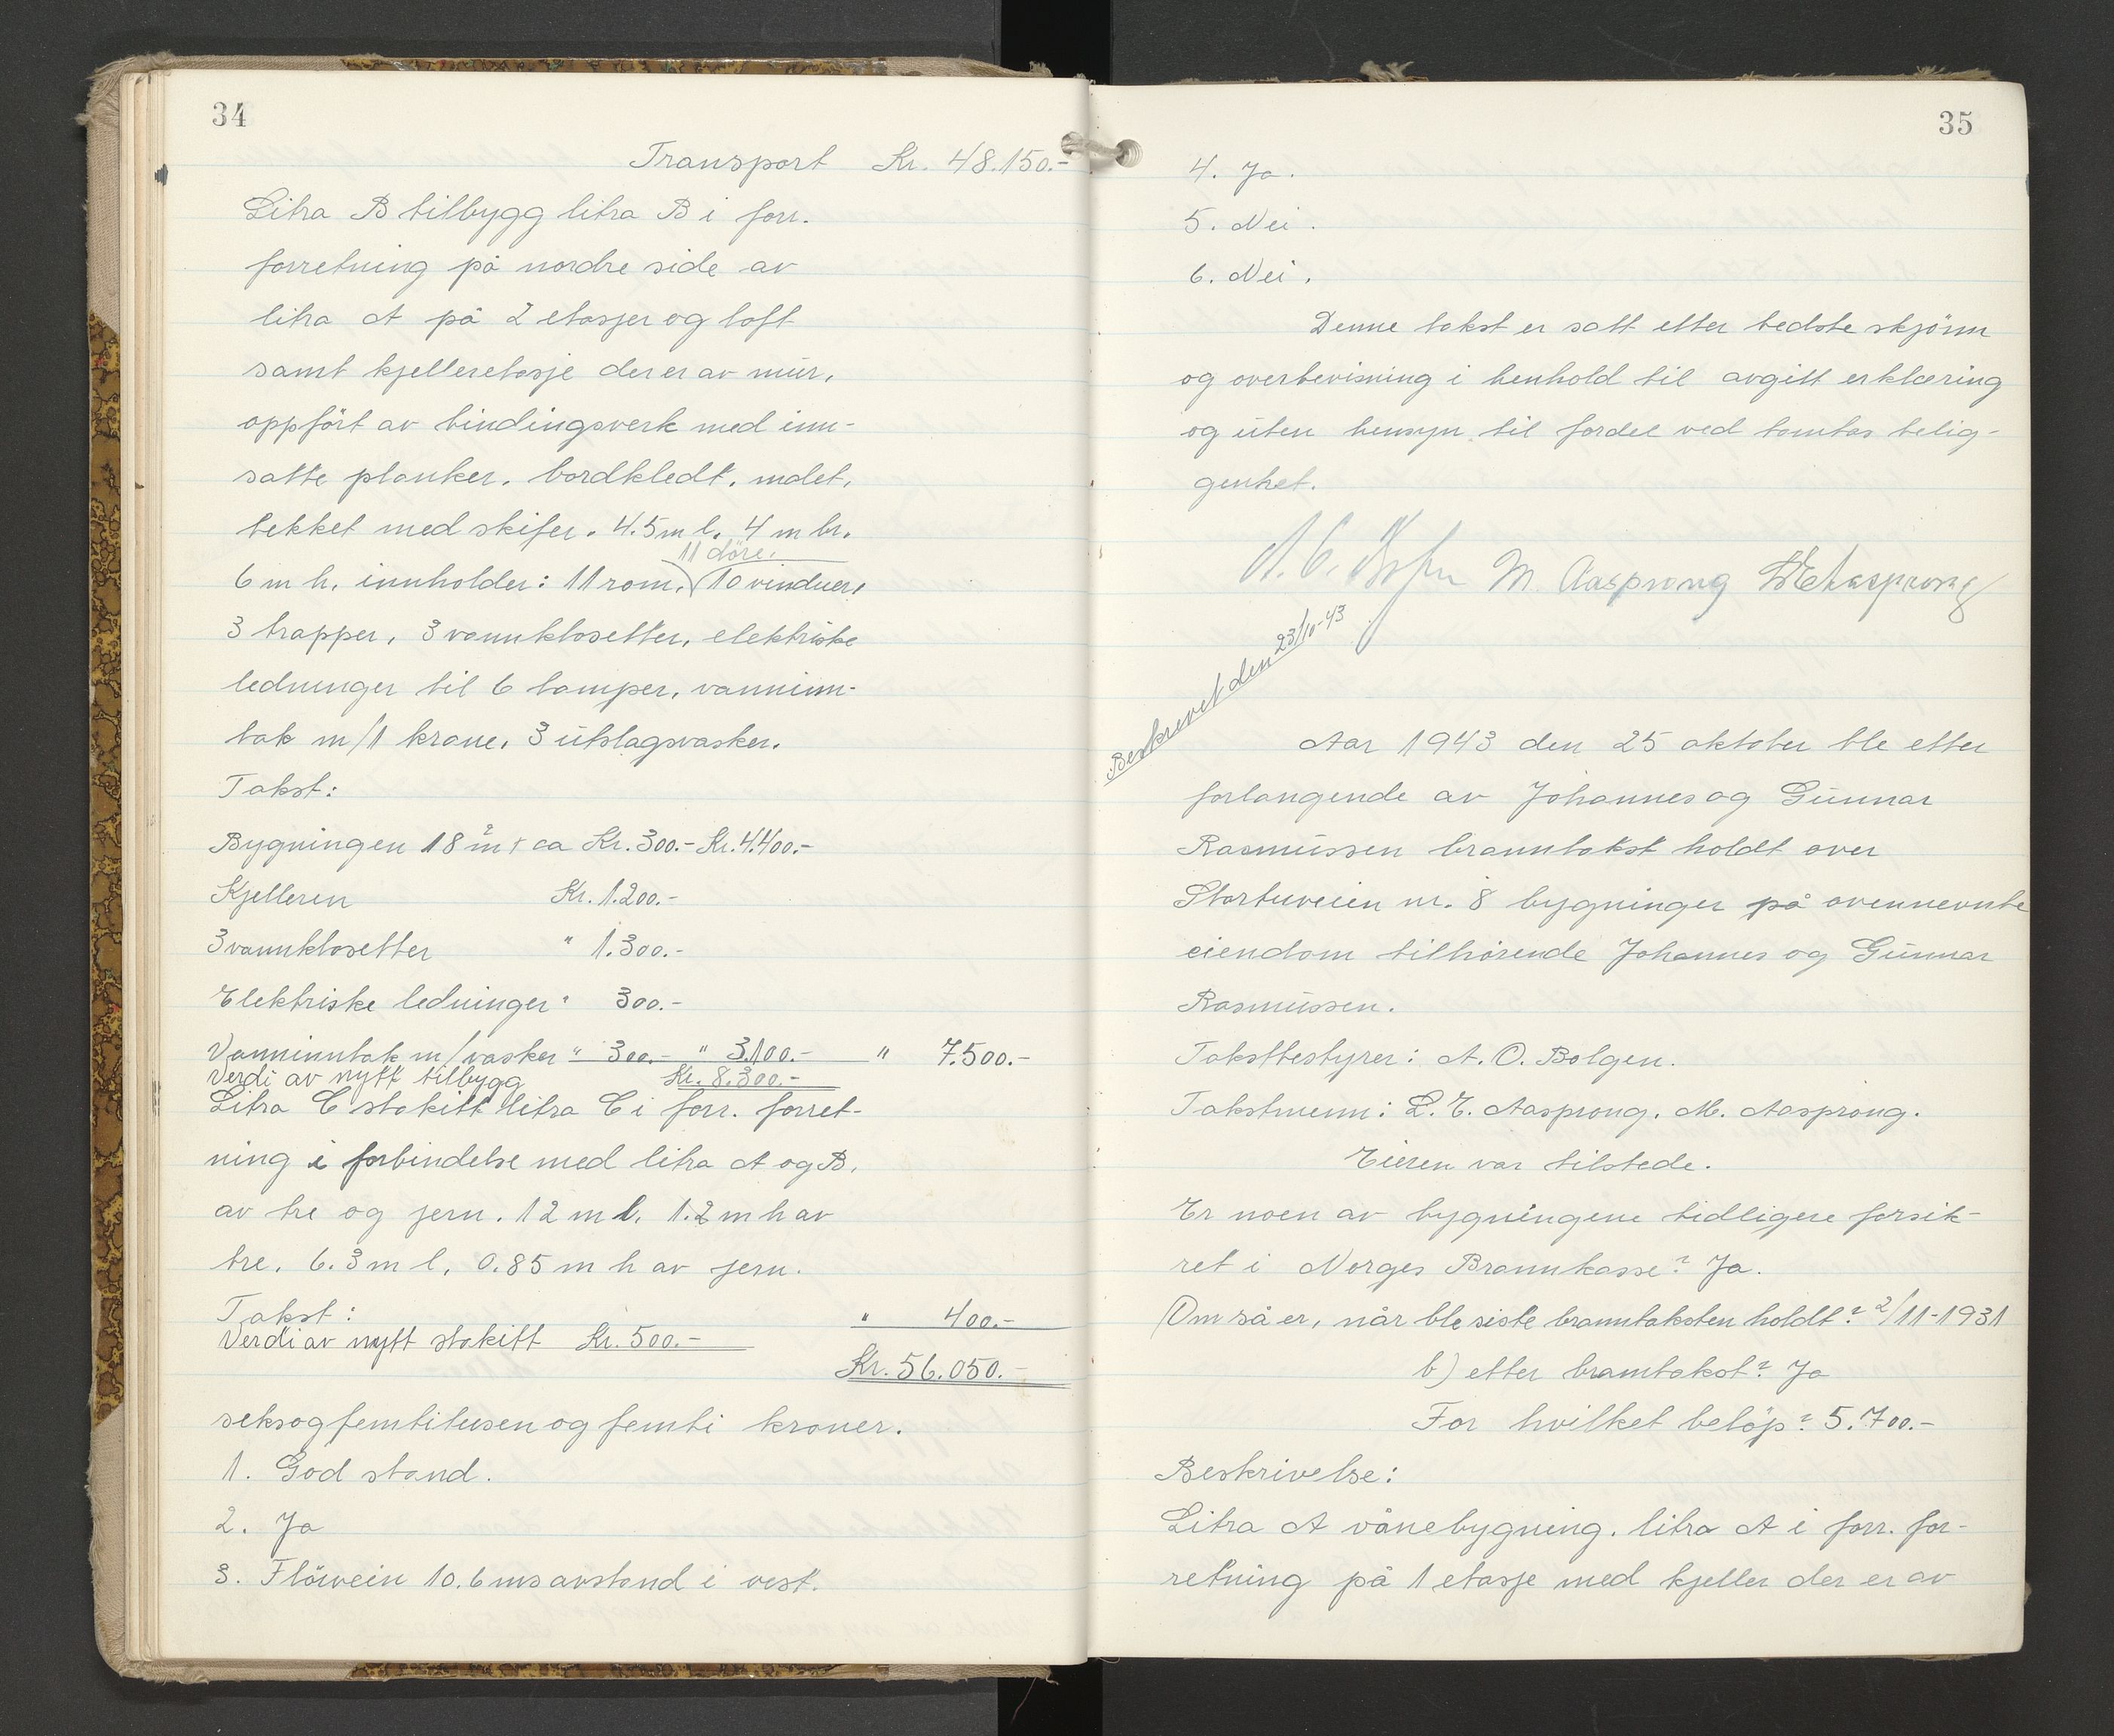 34
Transport Kr. 48.150.-
Litra B tilbygg litra B i forr.
forretning på nordre side av
litra A på 2 etasjer og loft
samt kjelleretasje der er av mur,
oppført av bindingsverk med inn-
satte planker, bordkledt, malet,
tekket med skifer. 4.5 m l. 4 m br.
11 döre.
6 m h. innholder: 11 rom, 10 vinduer,
3 trapper, 3 vannklosetter, elektriske
ledninger til 6 lamper, vanninn-
tak m/1 krane, 3 utslagsvasker.
Takst:
Bygningen 18 m² + ca Kr. 300.- Kr. 4.400.-
Kjelleren Kr. 1.200.-
3 vannklosetter " 1.300.-
Elektriske ledninger " 300.-
Vanninntak m/vasker " 300.- " 3.100.- " 7.500.-
Verdi av nytt tilbygg Kr. 8.300.-
Litra C stakitt litra C i forr. forret-
ning i forbindelse med litra A og B,
av tre og jern. 12 m l. 1.2 m h av
tre, 6.3 m l, 0.85 m h av jern.
Takst: " 400.-
Verdi av nytt stakitt Kr. 500.-
Kr. 56.050.-
seksogfemtitusenogfemti kroner.
1. God stand.
2. Ja
3. Flöivein 10.6 ms avstand i vest.
35
4. Ja.
5. Nei.
6. Nei.
Denne takst er satt etter bedste skjönn
og overbevisning i henhold til avgitt erklæring
og uten hensyn til fordel ved tomtas belig-
genhet.
M. Aasprong L E Aasprong
Beskrevet den 23/10-43
Aar 1943 den 25 oktober ble etter
forlangende av Johannes og Gunnar
Rasmussen branntakst holdt over
Starbuveien nr. 8 bygninger på ovennevnte
eiendom tilhørende Johannes og Gunnar
Rasmussen.
Takstbestyrer: A. O. Bolgen.
Takstmenn: L. E. Aasprong. M. Aasprong.
Eieren var tilstede.
Er noen av bygningene tidligere forsik-
ret i Norges Brannkasse? Ja.
Om så er, når ble siste branntaksten holdt? 2/11-1931
b) etter branntakst? Ja
For hvilket belöp? 5.700.-
Beskrivelse:
Litra A vånebygning, litra A i forr. for-
retning på 1 etasje med kjeller der er av